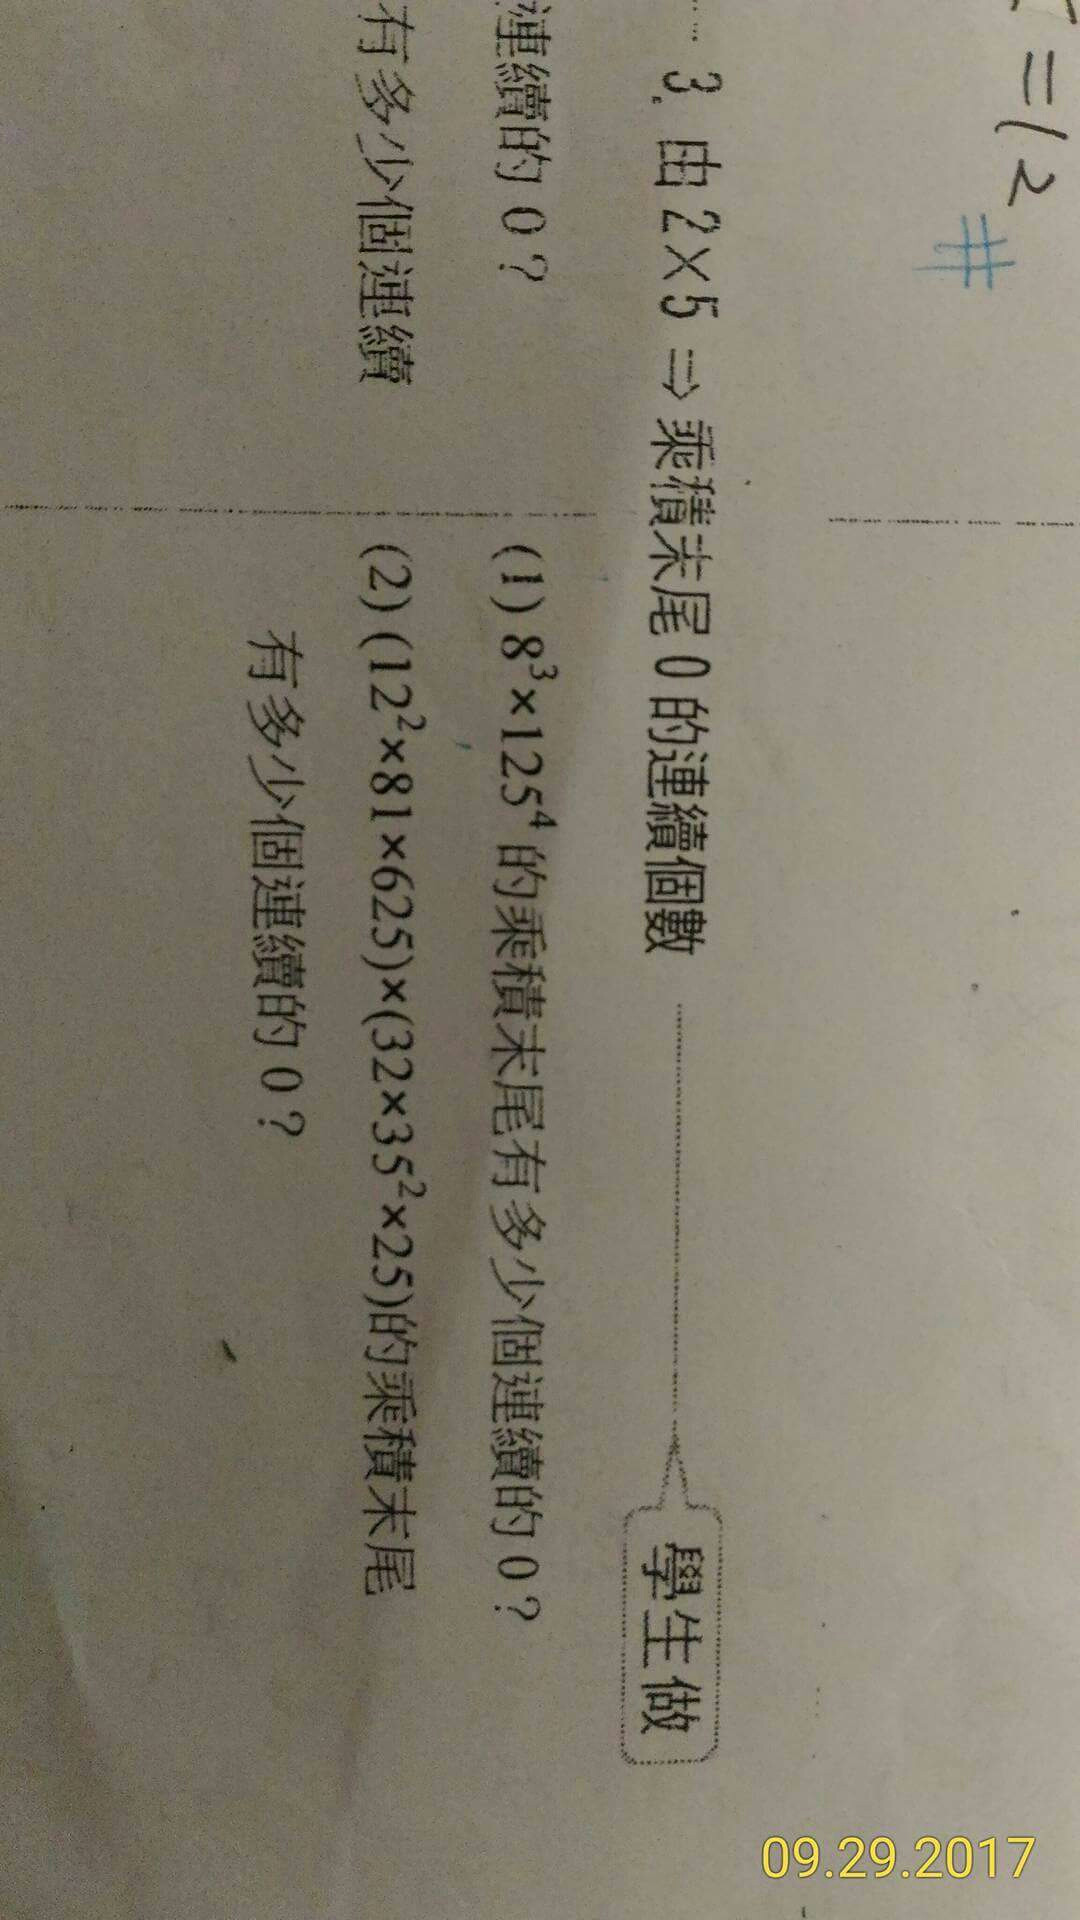 =12
#
3. 由 2×5 ⇒ 乘積末尾 0 的連續個數
學生做
連續的 0?
(1) 8³×125⁴ 的乘積末尾有多少個連續的 0?
有多少個連續
(2) (12²×81×625)×(32×35²×25)的乘積末尾
有多少個連續的 0?
09.29.2017